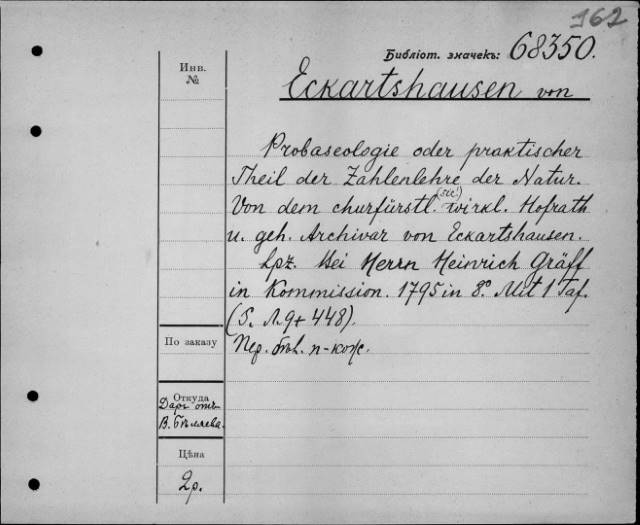 162
Библіот. значекъ: 68350.
Инв.
№
Eckartshausen von
Probaseologie oder praktischer
Theil der Zahlenlehre der Natur.
(sic!)
Von dem churfürstl. wirkl. Hofrath
u. geh. Archivar von Eckartshausen.
Lpz. Bei Herrn Heinrich Gräff
in Kommission. 1795 in 8.° Mit 1 Taf.
(S. 9+448).
По заказу
Пер. п-кож.
Откуда
Даръ отъ
В. Бѣляева.
Цѣна
2р.